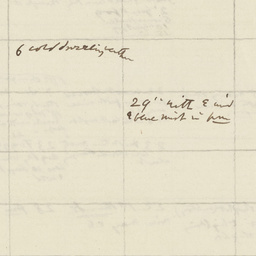 6 cold drizzling rather
29'' with E wind
& blue mist in pm